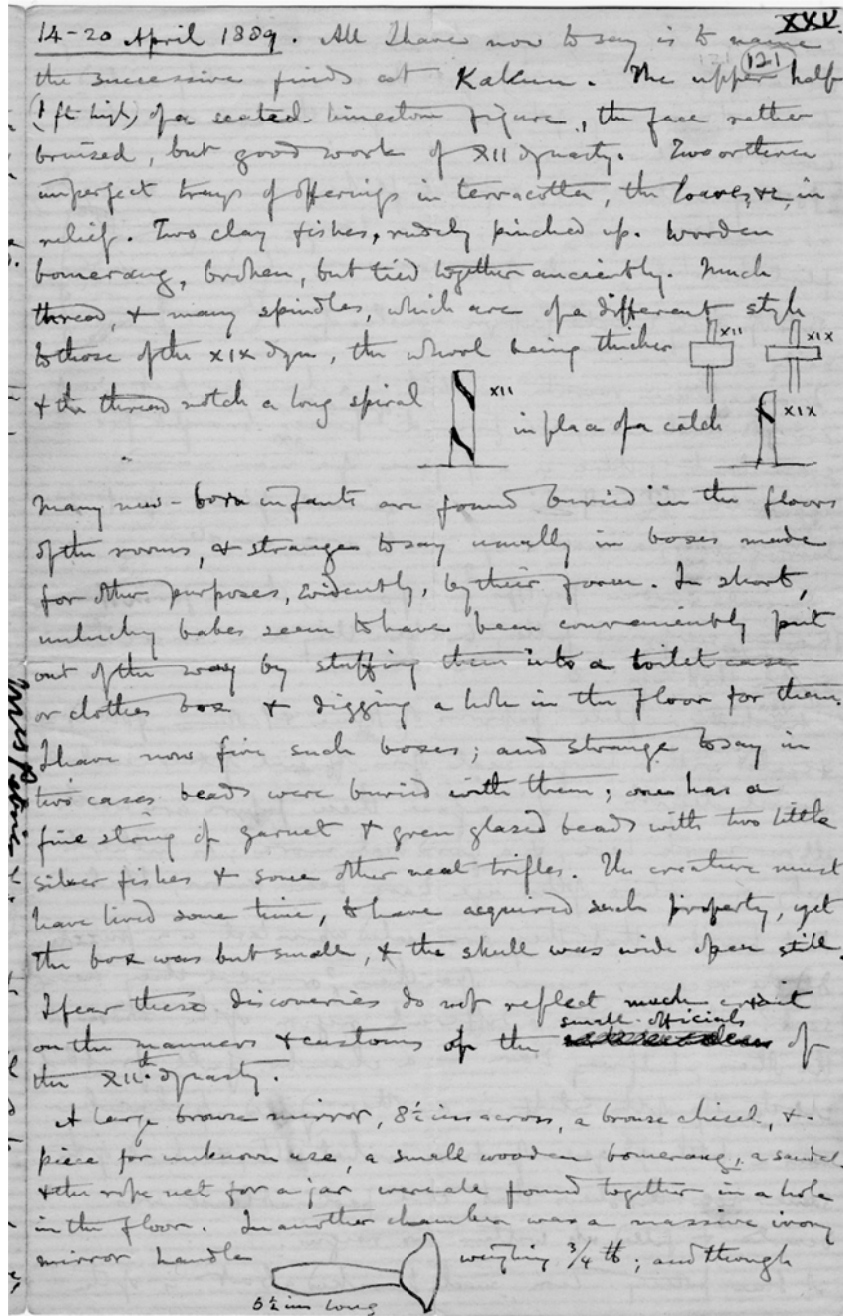 XXV.
14-20 April 1889. All I have now to say is to name
121
the successive finds at Kahun. The upper half
(1 ft high) of a seated limestone figure, the face rather
bruised, but good work of XII dynasty. Two or three
imperfect trays of offerings in terracotta, the loaves, &c, in
relief. Two clay fishes, rudely pinched up. Wooden
bomerang, broken, but tied together anciently. Much
thread, & many spindles, which are of a different style
to those of the XIX dyn, the whorl being thicker XII XIX
& the thread notch a long spiral XII in place of a catch XIX
Many new-born infants are found buried in the floors
of the rooms, & strange to say usually in boxes made
for other purposes, evidently, by their form. In short,
unlucky babes seem to have been conveniently put
out of the way by stuffing them into a toilet case
or clothes box & digging a hole in the floor for them.
I have now five such boxes; and strange to say in
two cases beads were buried with them; one has a
fine string of garnet & green glazed beads with two little
silver fishes & some other neat trifles. The creature must
have lived some time, to have acquired such property, yet
the box was but small, & the skull was wide open still.
I fear these discoveries do not reflect much credit
on the manners & customs of the small officials of
the XIIth dynasty.
A large bronze mirror, 8½ ins across, a bronze chisel, &
piece for unknown use, a small wooden bomerang, a sandal
& the rope net for a jar were all found together in a hole
in the floor. In another chamber was a massive ivory
mirror handle weighing ¾ lb; and though
5½ ins long